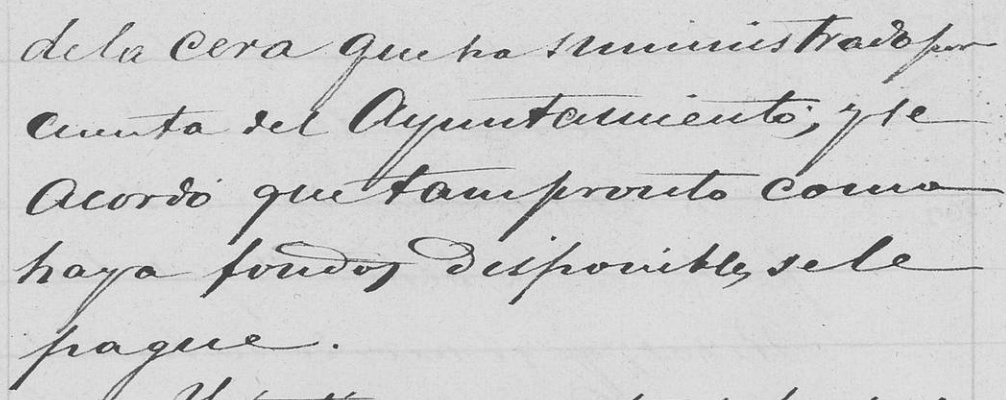 de la cera que ha suministrado por
cuenta del Ayuntamiento, y se
acordó que tam pronto como
haya fondos disponibles, se le
pague.